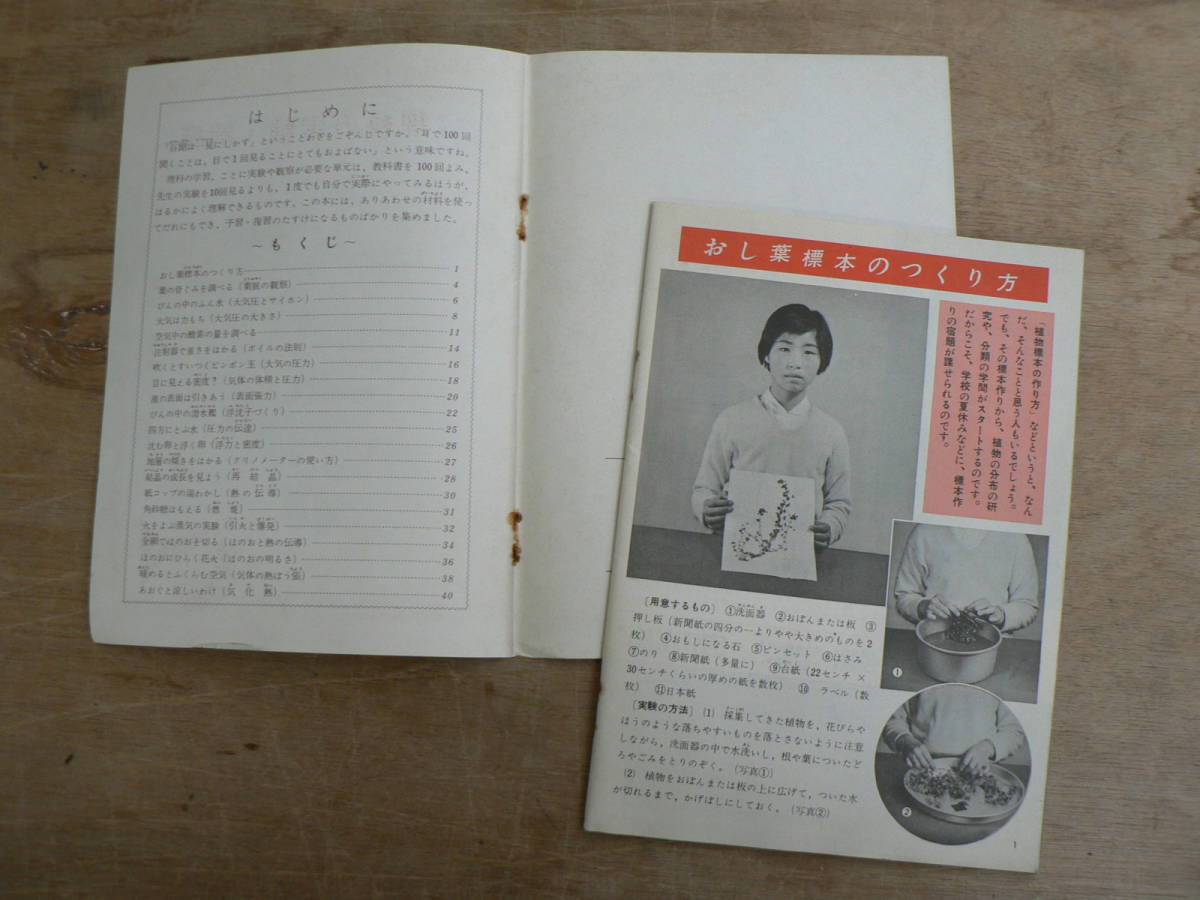 はじめに
「百聞は一見にしかず」ということわざをごぞんじですか。「耳で100回
聞くことは、目で1回見ることにとてもおよばない」という意味ですね。
理科の学習、ことに実験や観察が必要な単元は、教科書を100回よみ、
先生の実験を10回見るよりも、1度でも自分で実際にやってみるほうが、
はるかによく理解できるものです。この本には、ありあわせの材料を使っ
てだれにもでき、予習・復習のたすけになるものばかりを集めました。
～もくじ～
おし葉標本のつくり方 1
葉の骨ぐみを調べる（葉脈の観察） 4
びんの中のふん水（大気圧とサイホン） 6
大気は力もち（大気圧の大きさ） 8
空気中の酸素の量を調べる 11
注射器で重さをはかる（ボイルの法則） 14
吹くとすいつくピンポン玉（大気の圧力） 16
目に見える密度？（気体の体積と圧力） 18
液の表面は引きあう（表面張力） 20
びんの中の潜水艦（浮沈子づくり） 22
四方にとぶ水（圧力の伝達） 25
沈む卵と浮く卵（浮力と密度） 26
地層の傾きをはかる（クリノメーターの使い方） 27
結晶の成長を見よう（再結晶） 28
紙コップの湯わかし（熱の伝導） 30
角砂糖はもえる（触媒） 31
火をよぶ蒸気の実験（引火と爆発） 32
金網でほのおを切る（ほのおと熱の伝導） 34
ほのおにひらく花火（ほのおの明るさ） 36
暖めるとふくらむ空気（気体の熱ぼう張） 38
あおぐと涼しいわけ（気化熱） 40
おし葉標本のつくり方
「植物標本の作り方」などというと、なん
だ、そんなことと思う人もいるでしょう。
でも、その標本作りから、植物の分布の研
究や、分類の学問がスタートするのです。
だからこそ、学校の夏休みなどに、標本作
りの宿題が課せられるのです。
〔用意するもの〕 ①洗面器 ②おぼんまたは板 ③
押し板（新聞紙の四分の一よりやや大きめのものを2
枚） ④おもしになる石 ⑤ピンセット ⑥はさみ
⑦のり ⑧新聞紙（多量に） ⑨台紙（22センチ×
30センチくらいの厚めの紙を数枚） ⑩ ラベル（数
枚） ⑪日本紙
〔実験の方法〕 (1) 採集してきた植物を，花びらや
ほうのような落ちやすいものを落とさないように注意
しながら，洗面器の中で水洗いし，根や葉についたど
ろやごみをとりのぞく。（写真①）
(2) 植物をおぼんまたは板の上に広げて，ついた水
が切れるまで，かげぼしにしておく。（写真②）
①
②
1